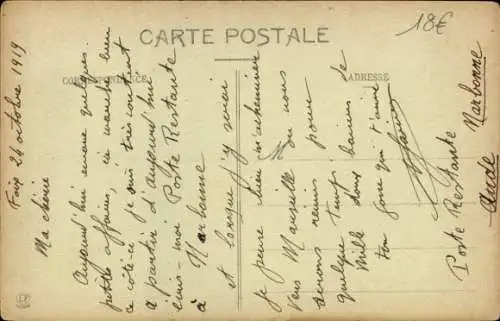 CARTE POSTALE
18€
CORRESPONDANCE
ADRESSE
Foix 21 octobre 1919
Ma chérie
Aujourd'hui encore quelques
petites affaires, ça marche bien
ce côté-ci je suis très content
à partir d'aujourd'hui
écris-moi Poste Restante
à Narbonne
et lorsque j'y serai
je pense bien m'acheminer
vers Marseille où nous
serons réunis pour
quelque temps
Mille doux baisers de
ton qui t'aime
Poste Restante
Narbonne
Aude